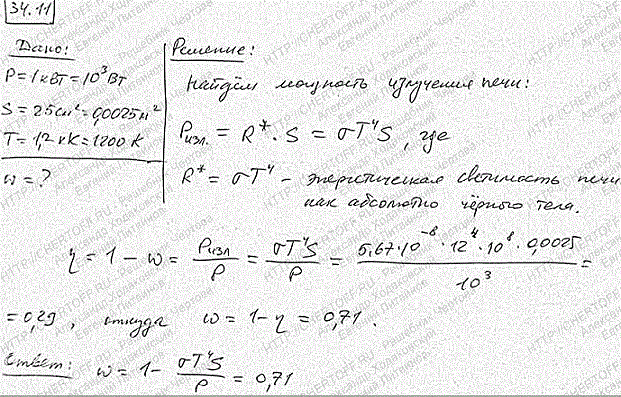 34.11
Дано:
P = 1 кВт = 10³ Вт
S = 25 см² = 0,0025 м²
T = 1,2 кК = 1200 К
w = ?
Решение:
Найдём мощность излучения печи:
Pизл. = R* · S = σT⁴S, где
R* = σT⁴ – энергетическая светимость печи
как абсолютно чёрного тела.
η = 1 − w = Pизл / P = σT⁴S / P = 5,67·10⁻⁸ · 12⁴ · 10⁸ · 0,0025 / 10³ =
= 0,29, откуда w = 1 − η = 0,71.
Ответ: w = 1 − σT⁴S / P = 0,71
HTTP://CHERTOFF.RU - Решебник Чертова
Александр Иванов
Евгений Питанов